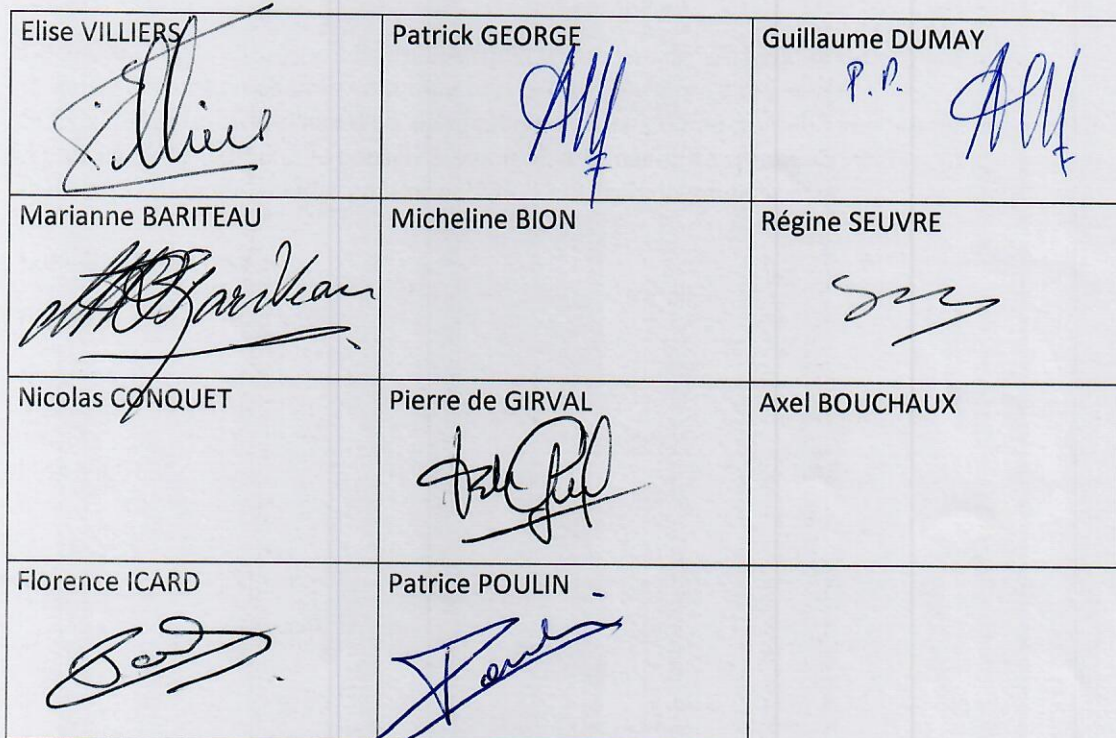 Elise VILLIERS
Patrick GEORGE
Guillaume DUMAY
P.P.
Marianne BARITEAU
Micheline BION
Régine SEUVRE
Nicolas CONQUET
Pierre de GIRVAL
Axel BOUCHAUX
Florence ICARD
Patrice POULIN